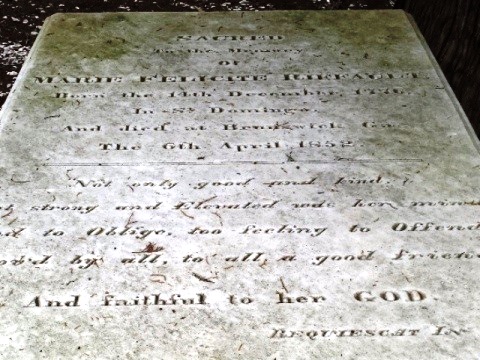 SACRED
To the Memory
OF
MARIE FELICITE
Born the 14th December
In St. Domingo
And died at Brunswick Ga.
The 6th April 1852
Not only good and kind,
strong and Elevated was her
to Oblige, too feeling to Offend
by all, to all, a good Friend
And faithful to her GOD.
REQUIESCAT IN